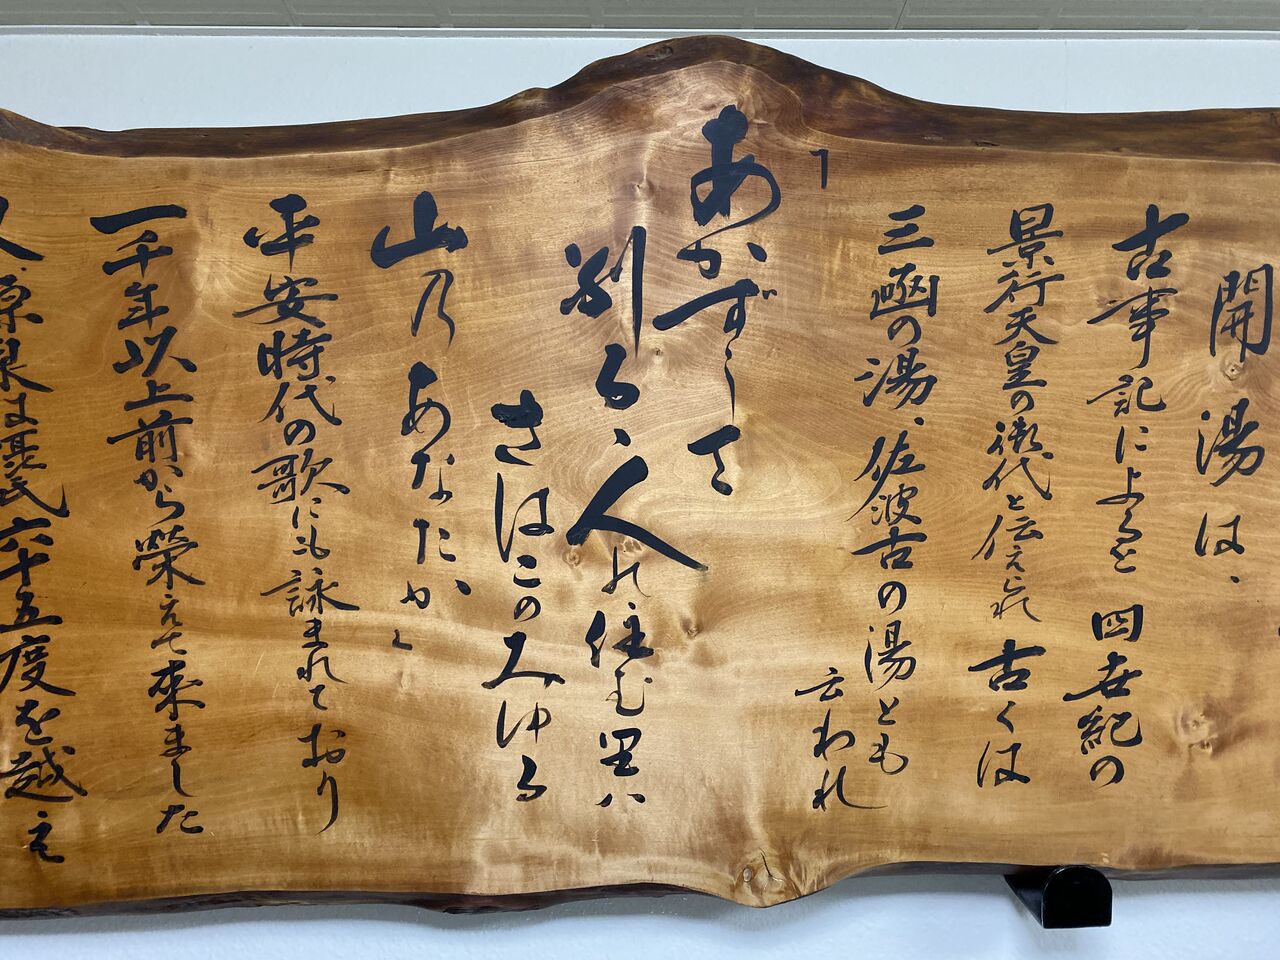 開湯は、
古事記によると 四世紀の
景行天皇の御代と伝えられ 古くは
三凾の湯、佐波古の湯とも
云われ
「あかずして
別るゝ人の住む里は
さはこのみゆる
山乃あなたか」
平安時代の歌にも詠まれており
一千年以上前から榮えて來ました
源泉は摂氏六十五度を越え